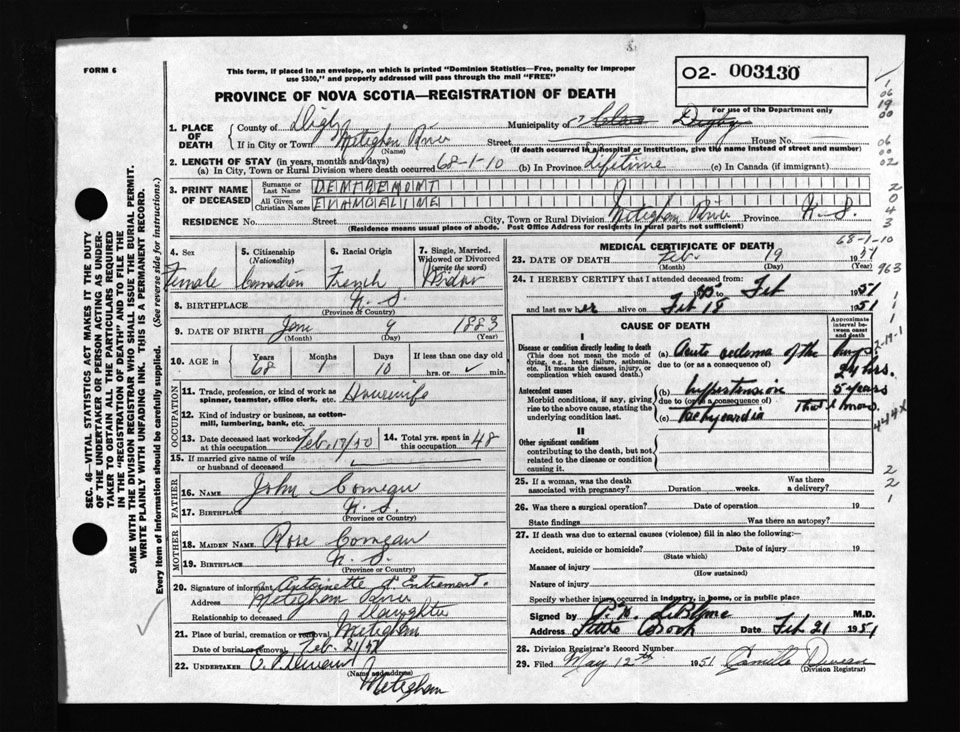 FORM 6
This form, if placed in an envelope, on which is printed "Dominion Statistics—Free, penalty for improper
use $300," and properly addressed will pass through the mail "FREE"
02- 003130
PROVINCE OF NOVA SCOTIA—REGISTRATION OF DEATH
For use of the Department only
1. PLACE OF DEATH
County of Digby
Municipality of Clare Digby
If in City or Town Meteghan River (Name) Street House No.
(If death occurred in a hospital or institution, give the name instead of street and number)
2. LENGTH OF STAY (in years, months and days)
(a) In City, Town or Rural Division where death occurred 68-1-10 (b) In Province Lifetime (c) In Canada (if immigrant)
3. PRINT NAME OF DECEASED
Surname or Last Name DENTREMONT
All Given or Christian Names EVANGELINE
RESIDENCE No. Street City, Town or Rural Division Meteghan River Province N. S.
(Residence means usual place of abode. Post Office Address for residents in rural parts not sufficient)
4. Sex Female
5. Citizenship (Nationality) Canadian
6. Racial Origin French
7. Single, Married, Widowed or Divorced (write the word) Widow
8. BIRTHPLACE N. S.
(Province or Country)
9. DATE OF BIRTH Jan 9 1883
(Month) (Day) (Year)
10. AGE in Years 68 Months 1 Days 10 If less than one day old hrs. or min.
OCCUPATION
11. Trade, profession, or kind of work as spinner, teamster, office clerk, etc. Housewife
12. Kind of industry or business, as cotton-mill, lumbering, bank, etc.
13. Date deceased last worked at this occupation Feb. 17/50
14. Total yrs. spent in this occupation 48
15. If married give name of wife or husband of deceased
FATHER
16. NAME John Comeau
17. BIRTHPLACE N. S.
(Province or Country)
MOTHER
18. MAIDEN NAME Rose
19. BIRTHPLACE N. S.
(Province or Country)
20. Signature of informant Antoinette d'Entremont.
Address Meteghan River
Relationship to deceased Daughter
21. Place of burial, cremation or removal Meteghan
Date of burial or removal Feb. 21/51
22. UNDERTAKER
(Name and address)
Meteghan
MEDICAL CERTIFICATE OF DEATH
68-1-10
23. DATE OF DEATH Feb. 19 1951
(Month) (Day) (Year)
24. I HEREBY CERTIFY that I attended deceased from:
to Feb 1951
and last saw her alive on Feb 18 1951
CAUSE OF DEATH
Approximate interval between onset and death
I
Disease or condition directly leading to death
(This does not mean the mode of dying, e.g., heart failure, asthenia, etc. It means the disease, injury, or complication which caused death.)
(a) Acute oedema of the lungs 24 hrs.
due to (or as a consequence of)
Antecedent causes
Morbid conditions, if any, giving rise to the above cause, stating the underlying condition last.
(b) hypertension 5 years
due to (or as a consequence of) That I know.
(c) tachycardia
II
Other significant conditions
contributing to the death, but not related to the disease or condition causing it.
25. If a woman, was the death associated with pregnancy? Duration weeks. Was there a delivery?
26. Was there a surgical operation? Date of operation 19
State findings Was there an autopsy?
27. If death was due to external causes (violence) fill in also the following:
Accident, suicide or homicide? Date of injury 19
(State which)
Manner of injury
(How sustained)
Nature of injury
Specify whether injury occurred in industry, in home, or in public place
Signed by LeBlanc M.D.
Address Little Brook Date Feb 21 1951
28. Division Registrar's Record Number
29. Filed May 12th 1951 Camille
(Division Registrar)
SEC. 46—VITAL STATISTICS ACT MAKES IT THE DUTY
OF THE UNDERTAKER OR PERSON ACTING AS UNDER-
TAKER TO OBTAIN ALL THE PARTICULARS REQUIRED
IN THE "REGISTRATION OF DEATH" AND TO FILE THE
SAME WITH THE DIVISION REGISTRAR WHO SHALL ISSUE THE BURIAL PERMIT.
WRITE PLAINLY WITH UNFADING INK. THIS IS A PERMANENT RECORD.
Every item of information should be carefully supplied. (See reverse side for instructions.)
1
06
19
00
06
00
02
2
0
4
3
963
1
1
1
2-19-1
444X
2
2
1